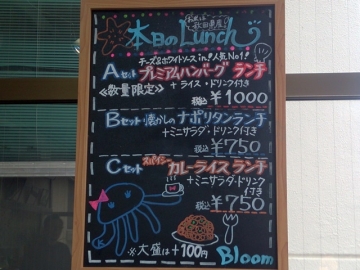 本日のLunch
チーズ&ホワイトソース in!! 人気No.1!
Aセット プレミアムハンバーグ ランチ
≪数量限定≫ + ライス・ドリンク付き
税込 ¥1000
Bセット 懐かしの ナポリタンランチ
+ミニサラダ・ドリンク付き
税込 ¥750
Cセット スパイシー カレーライス ランチ
+ミニサラダ・ドリンク付き
税込 ¥750
※大盛は+100円
Bloom